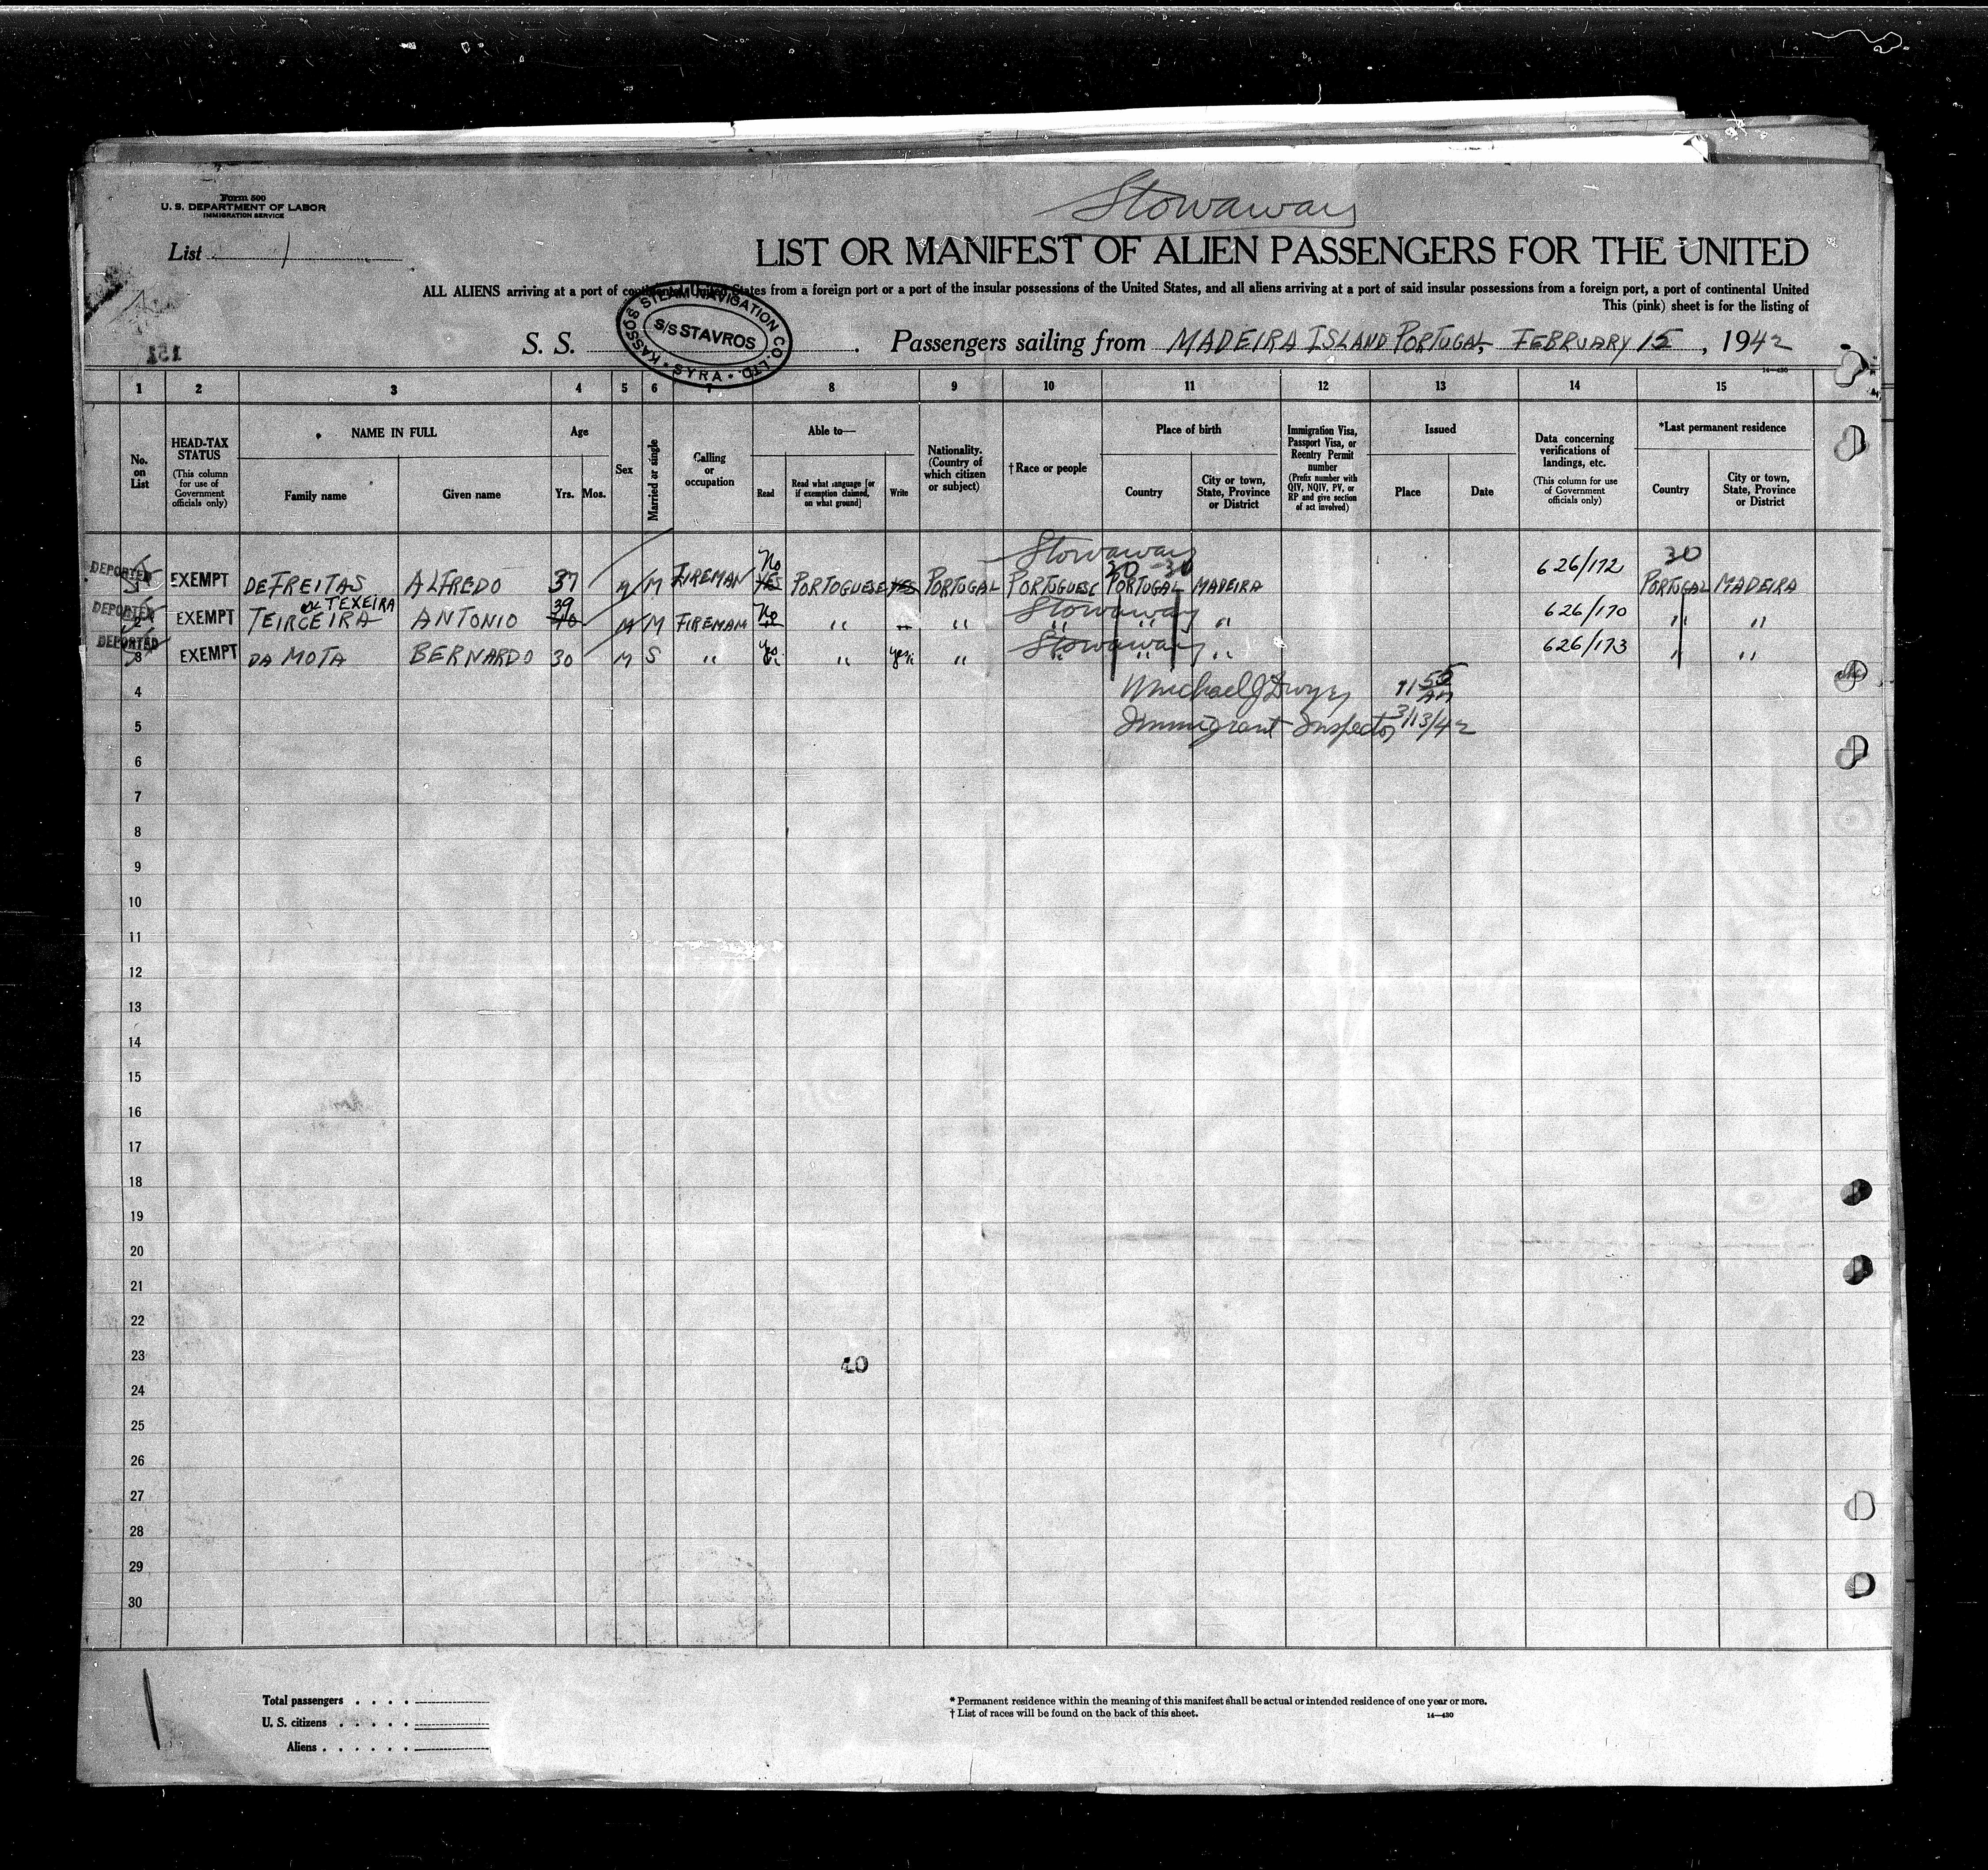 Stowaways
Form 500
U. S. DEPARTMENT OF LABOR
IMMIGRATION SERVICE
List 1
LIST OR MANIFEST OF ALIEN PASSENGERS FOR THE UNITED
ALL ALIENS arriving at a port of continental United States from a foreign port or a port of the insular possessions of the United States, and all aliens arriving at a port of said insular possessions from a foreign port, a port of continental United
This (pink) sheet is for the listing of
KASSOS STEAM NAVIGATION CO. LTD. • SYRA •
S/S STAVROS
S. S. . Passengers sailing from MADEIRA ISLAND PORTUGAL, FEBRUARY 15, 1942
151
14—430
1 2 3 4 5 6 7 8 9 10 11 12 13 14 15
No. on List
HEAD-TAX STATUS
(This column for use of Government officials only)
NAME IN FULL
Family name Given name
Age
Yrs. Mos.
Sex
Married or single
Calling or occupation
Able to—
Read
Read what language [or if exemption claimed, on what ground]
Write
Nationality. (Country of which citizen or subject)
†Race or people
Place of birth
Country
City or town, State, Province or District
Immigration Visa, Passport Visa, or Reentry Permit number
(Prefix number with QIV, NQIV, PV, or RP and give section of act involved)
Issued
Place Date
Data concerning verifications of landings, etc.
(This column for use of Government officials only)
*Last permanent residence
Country
City or town, State, Province or District
Stowaway
No 20 - 30 30
DEPORTED EXEMPT DEFREITAS ALFREDO 37 M M FIREMAN YES PORTOGUESE YES PORTUGAL PORTUGUESE PORTUGAL MADEIRA 626/172 PORTUGAL MADEIRA
or TEXEIRA 39 Stowaway
DEPORTED 2 EXEMPT TEIRCEIRA ANTONIO 40 M M FIREMAN No " " " " " " 626/170 " "
DEPORTED 3 EXEMPT DA MOTA BERNARDO 30 M S " Yes " yes " Stowaway " " " 626/173 " "
4 Michael J Dwyer 11 55 AM
5 Immigrant Inspector 3/13/42
6
7
8
9
10
11
12
13
14
15
16
17
18
19
20
21
22
23
40
24
25
26
27
28
29
30
Total passengers . . . .
U. S. citizens . . . . .
Aliens . . . . . .
* Permanent residence within the meaning of this manifest shall be actual or intended residence of one year or more.
† List of races will be found on the back of this sheet.
14—430